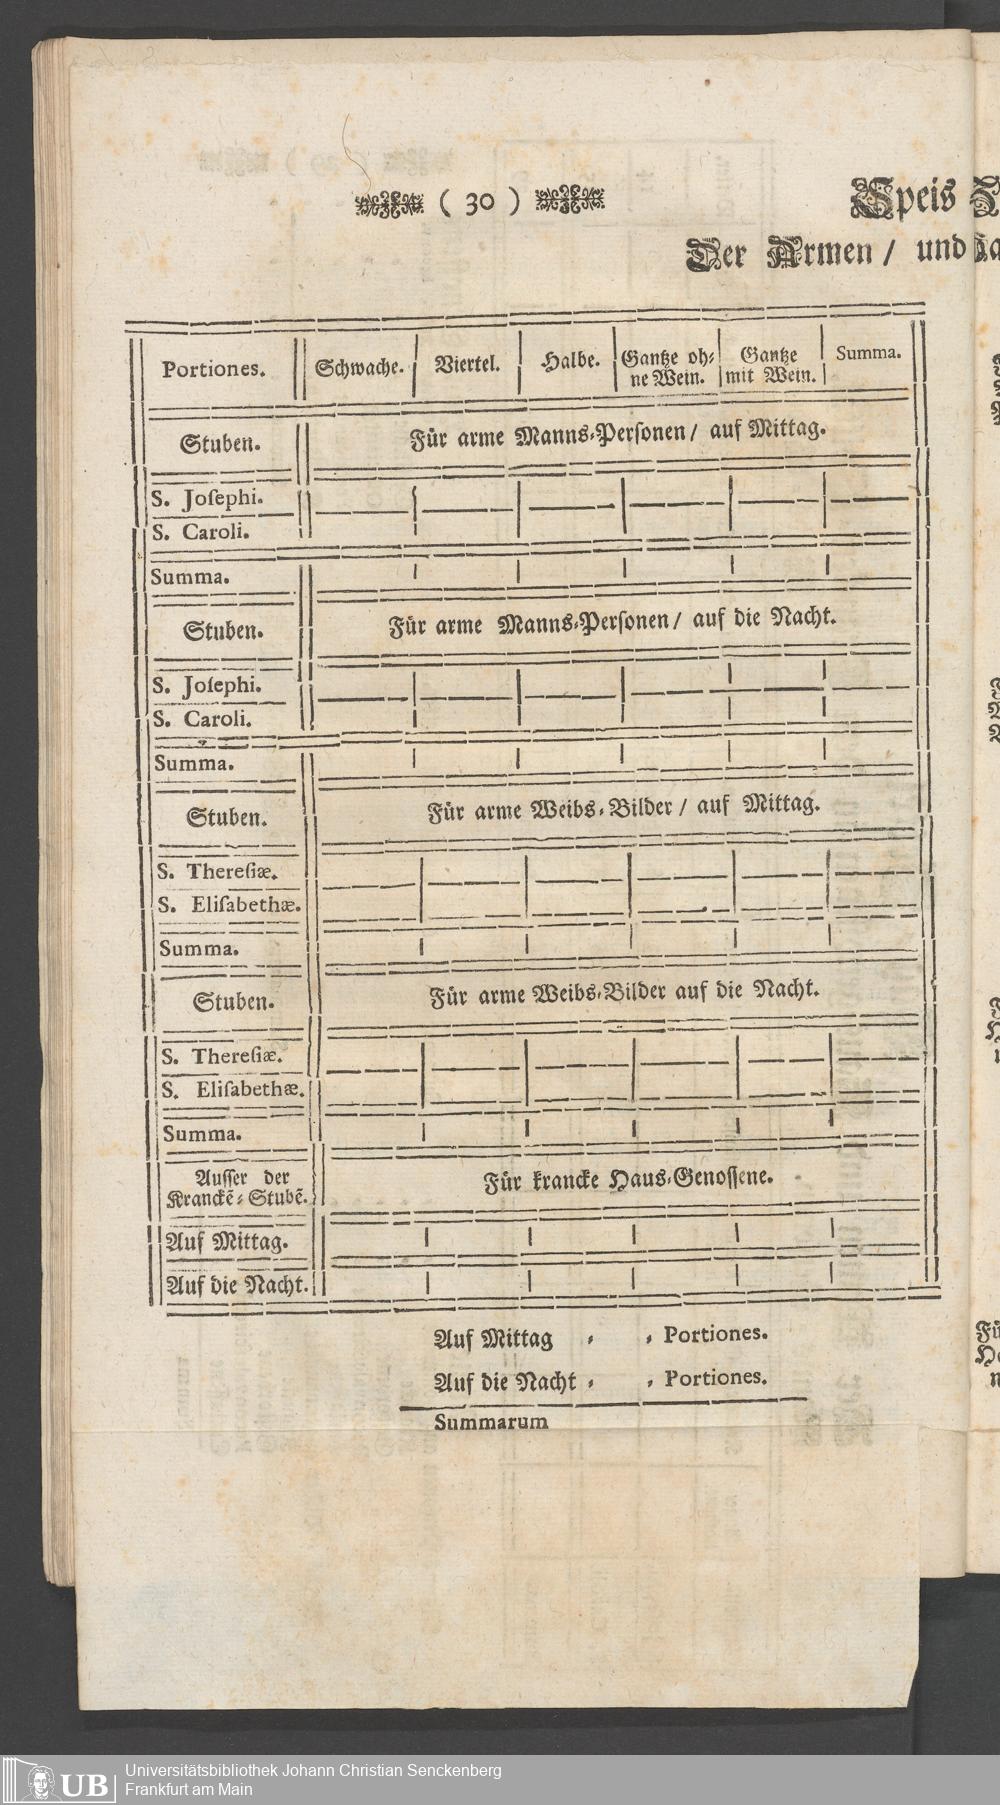 ( 30 )
Speis
Der Armen / und
Portiones. Schwache. Viertel. Halbe. Gantze oh⸗ Gantze Summa.
ne Wein. mit Wein.
Stuben. Für arme Manns⸗Perſonen / auf Mittag.
S. Joſephi.
S. Caroli.
Summa.
Stuben. Für arme Manns⸗Perſonen / auf die Nacht.
S. Joſephi.
S. Caroli.
Summa.
Stuben. Für arme Weibs⸗Bilder / auf Mittag.
S. Thereſiæ.
S. Eliſabethæ.
Summa.
Stuben. Für arme Weibs⸗Bilder auf die Nacht.
S. Thereſiæ.
S. Eliſabethæ.
Summa.
Auſſer der Für krancke Haus⸗Genoſſene.
Kranckẽ⸗Stubẽ.
Auf Mittag.
Auf die Nacht.
Auf Mittag ⸗ ⸗ Portiones.
Auf die Nacht ⸗ ⸗ Portiones.
Summarum
UB Universitätsbibliothek Johann Christian Senckenberg
Frankfurt am Main